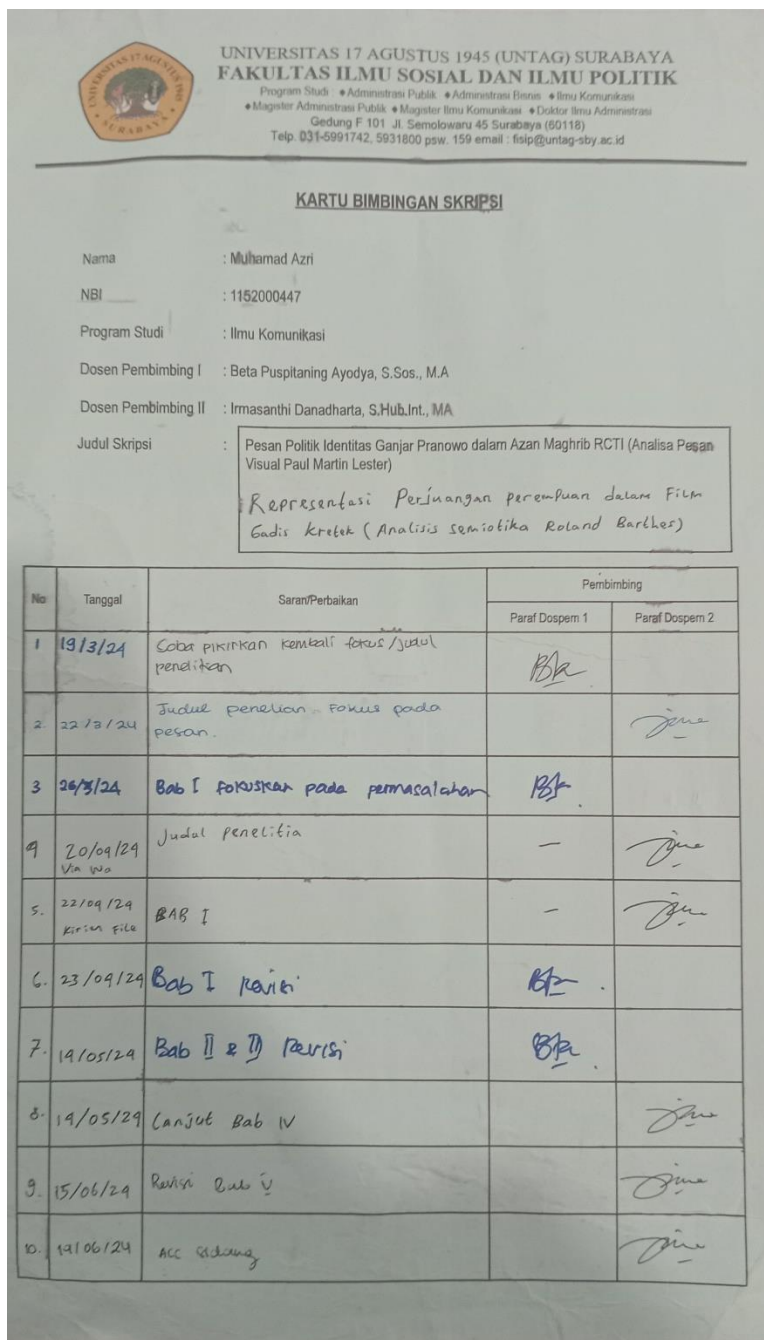 UNIVERSITAS 17 AGUSTUS 1945
SURABAYA
UNIVERSITAS 17 AGUSTUS 1945 (UNTAG) SURABAYA
FAKULTAS ILMU SOSIAL DAN ILMU POLITIK
Program Studi : ♦Administrasi Publik ♦Administrasi Bisnis ♦Ilmu Komunikasi
♦Magister Administrasi Publik ♦Magister Ilmu Komunikasi ♦Doktor Ilmu Administrasi
Gedung F 101 Jl. Semolowaru 45 Surabaya (60118)
Telp. 031-5991742, 5931800 psw. 159 email : fisip@untag-sby.ac.id
KARTU BIMBINGAN SKRIPSI
Nama : Muhamad Azri
NBI : 1152000447
Program Studi : Ilmu Komunikasi
Dosen Pembimbing I : Beta Puspitaning Ayodya, S.Sos., M.A
Dosen Pembimbing II : Irmasanthi Danadharta, S.Hub.Int., MA
Judul Skripsi : Pesan Politik Identitas Ganjar Pranowo dalam Azan Maghrib RCTI (Analisa Pesan
Visual Paul Martin Lester)
Representasi Perjuangan perempuan dalam Film
Gadis Kretek (Analisis semiotika Roland Barthes)
No Tanggal Saran/Perbaikan Pembimbing
Paraf Dospem 1 Paraf Dospem 2
1 19/3/24 Coba pikirkan kembali fokus/judul
penelitian
2. 22/3/24 Judul penelian Fokus pada
pesan.
3 26/3/24 Bab I fokuskan pada permasalahan
4 20/04/24 Judul penelitia –
Via Wa
5. 22/04/24 BAB I –
Kirim File
6. 23/04/24 Bab I Revisi
7. 14/05/24 Bab II & III Revisi
8. 14/05/24 Lanjut Bab IV
9. 15/06/24 Revisi Bab V
10. 19/06/24 ACC Sidang